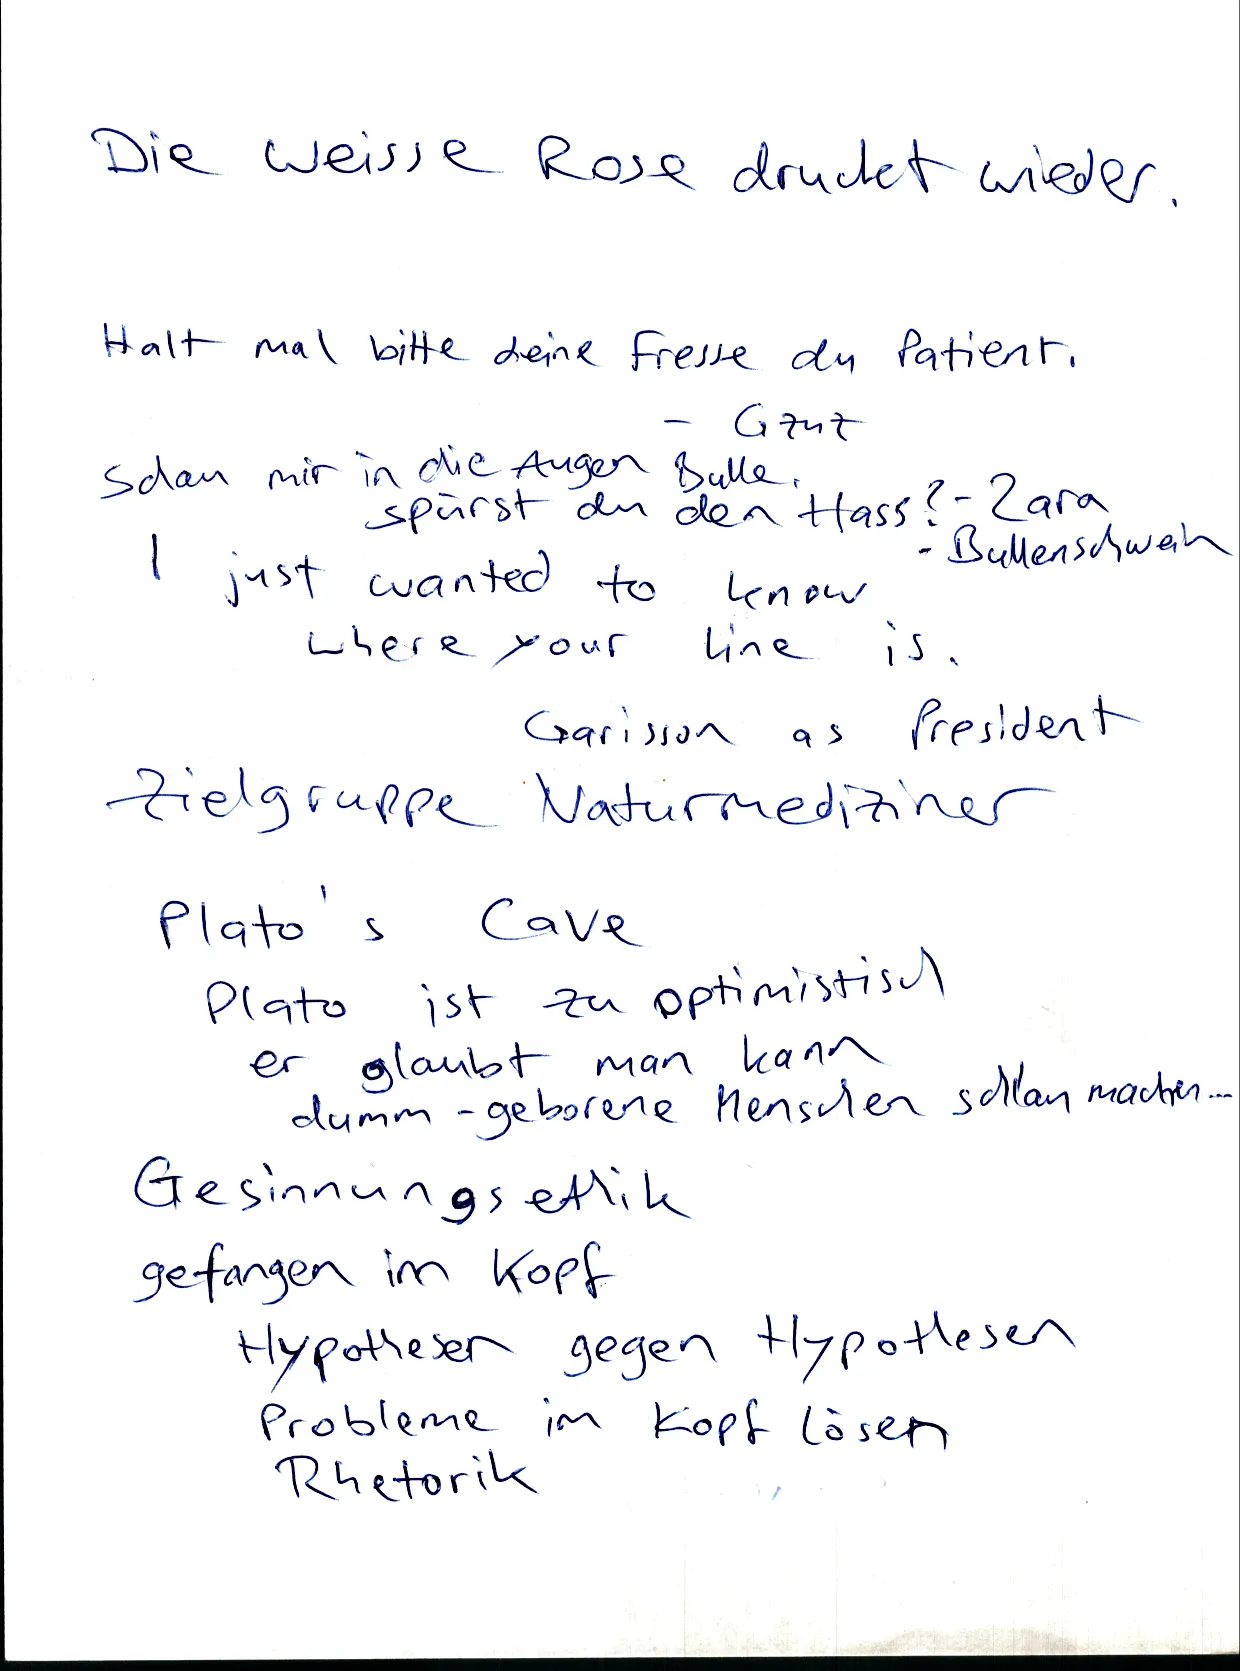 Die weisse Rose druckt wieder.
Halt mal bitte deine Fresse du Patient.
- Gzuz
Schau mir in die Augen Bulle.
spürst du den Hass? - Zara
- Bullenschwein
I just wanted to know
where your line is.
Garisson as President
Zielgruppe Naturmediziner
Plato's Cave
Plato ist zu optimistisch
er glaubt man kann
dumm-geborene Menschen schlau machen...
Gesinnungsethik
gefangen im Kopf
Hypothesen gegen Hypothesen
Probleme im Kopf lösen
Rhetorik